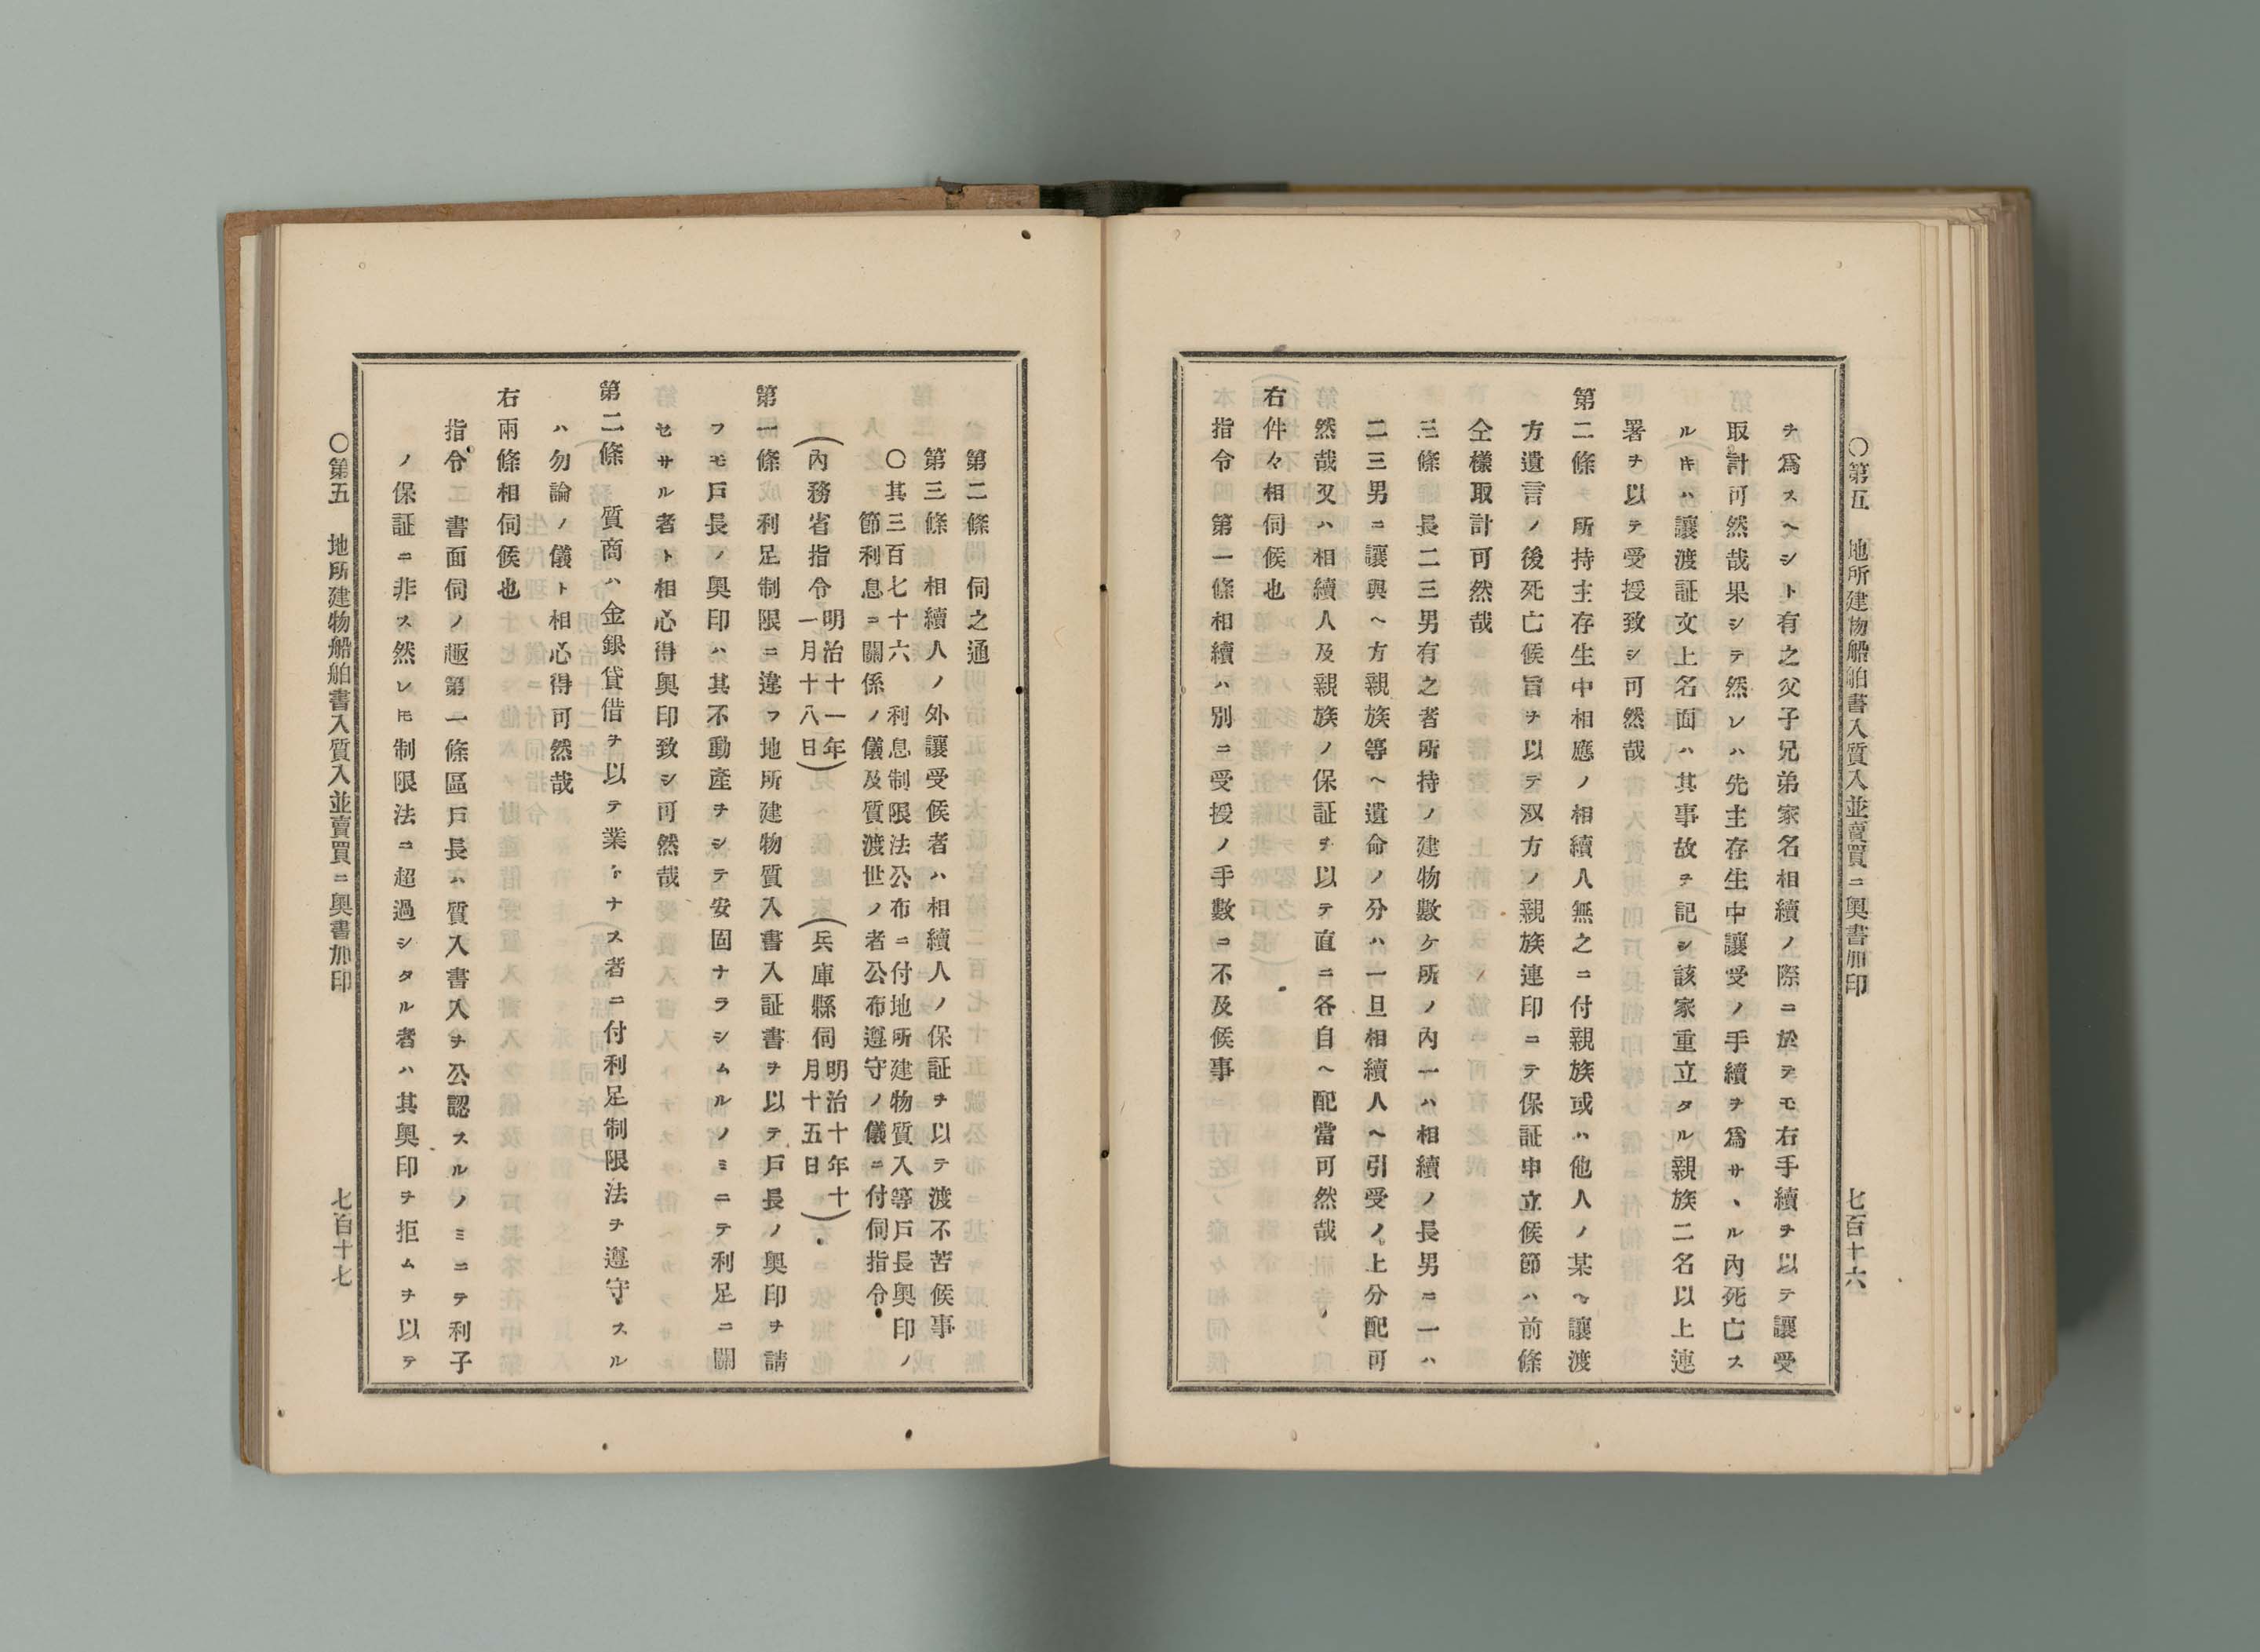 〇第五　地所建物船舶書入質入並賣買ニ奧書加印　七百十六
ヲ爲スヘシト有之父子兄弟家名相續ノ際ニ於テモ右手續ヲ以テ讓受
取計可然哉果シテ然レハ先主存生中讓受ノ手續ヲ爲サヽル內死亡ス
ルキハ讓渡証文上名面ハ其事故ヲ記シ該家重立タル親族二名以上連
署ヲ以テ受授致シ可然哉
第二條　所持主存生中相應ノ相續人無之ニ付親族或ハ他人ノ某ヘ讓渡
方遺言ノ後死亡候旨ヲ以テ双方ノ親族連印ニテ保証申立候節ハ前條
仝樣取計可然哉
三條　長二三男有之者所持ノ建物數ケ所ノ內一ハ相續ノ長男ニ一ハ
二三男ニ讓與ヘ方親族等ヘ遺命ノ分ハ一旦相續人ヘ引受ノ上分配可
然哉又ハ相續人及親族ノ保証ヲ以テ直ニ各自ヘ配當可然哉
右件々相伺候也
指令　第一條相續ハ別ニ受授ノ手數ニ不及候事
第二條　伺之通
第三條　相續人ノ外讓受候者ハ相續人ノ保証ヲ以テ渡不苦候事
〇其三百七十六　利息制限法公布ニ付地所建物質入等戶長奧印ノ
節利息ニ關係ノ儀及質渡世ノ者公布遵守ノ儀ニ付伺指令
（內務省指令明治十一年一月十八日）　（兵庫縣伺明治十年十月十五日）
第一條　利足制限ニ違フ地所建物質入書入証書ヲ以テ戶長ノ奧印ヲ請
フモ戶長ノ奧印ハ其不動產ヲシテ安固ナラシムルノミニテ利足ニ關
セサル者ト相心得奧印致シ可然哉
第二條　質商ハ金銀貸借ヲ以テ業トナス者ニ付利足制限法ヲ遵守スル
ハ勿論ノ儀ト相心得可然哉
右兩條相伺候也
指令　書面伺ノ趣第一條區戶長ハ質入書入ヲ公認スルノミニテ利子
ノ保証ニ非ス然レㇳモ制限法ニ超過シタル者ハ其奧印ヲ拒ムヲ以テ
〇第五　地所建物船舶書入質入並賣買ニ奧書加印　七百十七